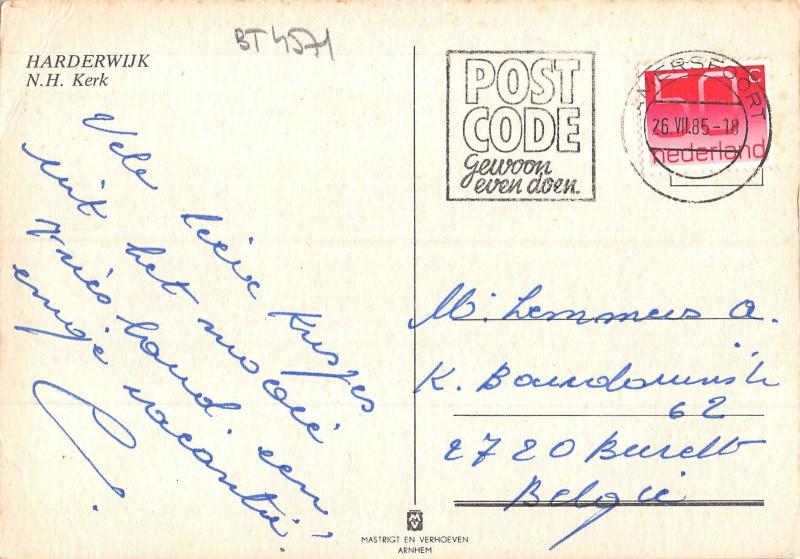 BT 4571
HARDERWIJK
N.H. Kerk
Vele lieve kusjes
uit het mooie
Vriesland. een
enige vacantie!
POST
CODE
gewoon
even doen.
AMERSFOORT
26.VII.85-18
60 c
nederland
M. Lemmens a.
K.
62
2720 Burcht
België
MASTRIGT EN VERHOEVEN
ARNHEM